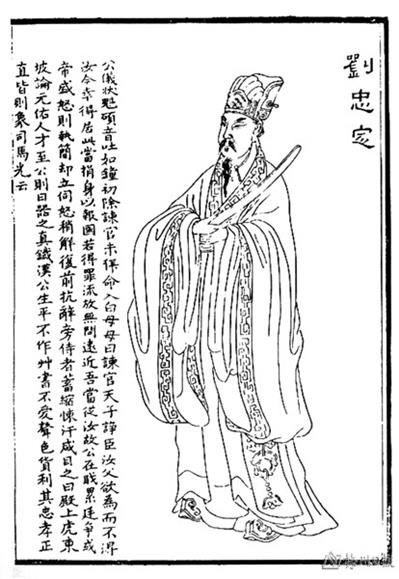 劉忠定
公儀狀魁碩音吐如鐘初除諫官未拜命入白母母曰諫官天子諍臣汝父欲為而不得
汝今幸得居此當捐身以報國若得罪流放無問遠近吾當從汝故公在職累廷爭或
帝盛怒則執簡却立伺怒稍解復前抗辭旁侍者畜縮悚汗咸目之曰殿上虎東
坡論元佑人才至公則曰器之真鐵漢公生平不作艸書不愛聲色貨利其忠孝正
直皆則象司馬光云